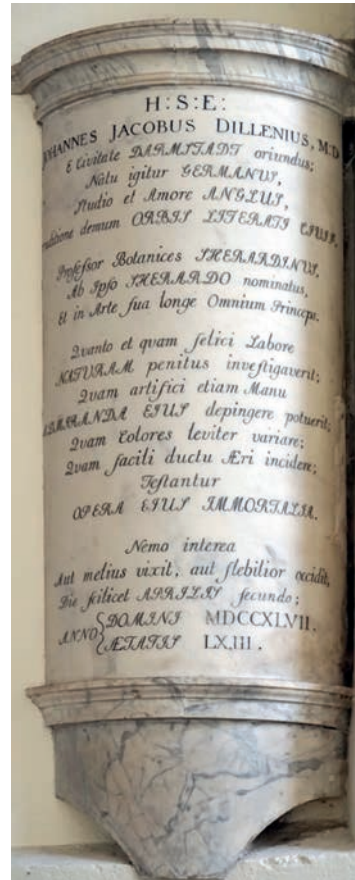 H:S:E:
JOHANNES JACOBUS DILLENIUS, M:D
E Civitate DARMSTADT oriundus;
Natu igitur GERMANUS,
Studio et Amore ANGLUS,
demum ORBIS LITERATI CIVIS,
Profeſsor Botanices SHERARDINUS,
Ab Ipſo SHERARDO nominatus,
Et in Arte ſua longe Omnium Princeps.
Quanto et quam felici Labore
NATURAM penitus inveſtigaverit;
Quam artifici etiam Manu
ADMIRANDA EJUS depingere potuerit;
Quam Colores leviter variare;
Quam facili ductu Æri incidere;
Teſtantur
OPERA EJUS IMMORTALIA.
Nemo interea
Aut melius vixit, aut flebilior occidit,
Die ſcilicet APRILIS ſecundo;
ANNO { DOMINI MDCCXLVII.
ÆTATIS LXIII.